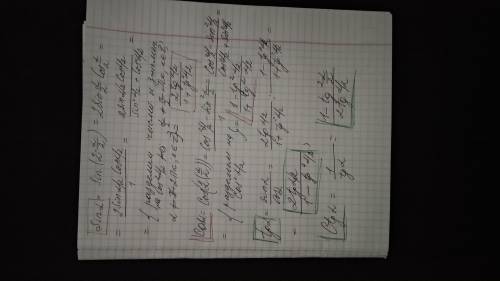 sin α = sin(2·α/2) = 2 sin α/2 cos α/2 =
= 2 sin α/2 cos α/2 / 1 = 2 sin α/2 cos α/2 / (sin² α/2 + cos² α/2) =
= { разделим числ и знамен
на cos² α/2
= 2 tg α/2 / (1 + tg² α/2)
cos α = cos(2(α/2)) = cos² α/2 - sin² α/2 = (cos² α/2 - sin² α/2) / (cos² α/2 + sin² α/2) =
= { разделим на cos² α/2 } = (1 - tg² α/2) / (1 + tg² α/2)
tg α = sin α / cos α = 2 tg α/2 / (1 + tg² α/2) : (1 - tg² α/2) / (1 + tg² α/2) =
= 2 tg α/2 / (1 - tg² α/2)
ctg α = 1 / tg α = (1 - tg² α/2) / (2 tg α/2)